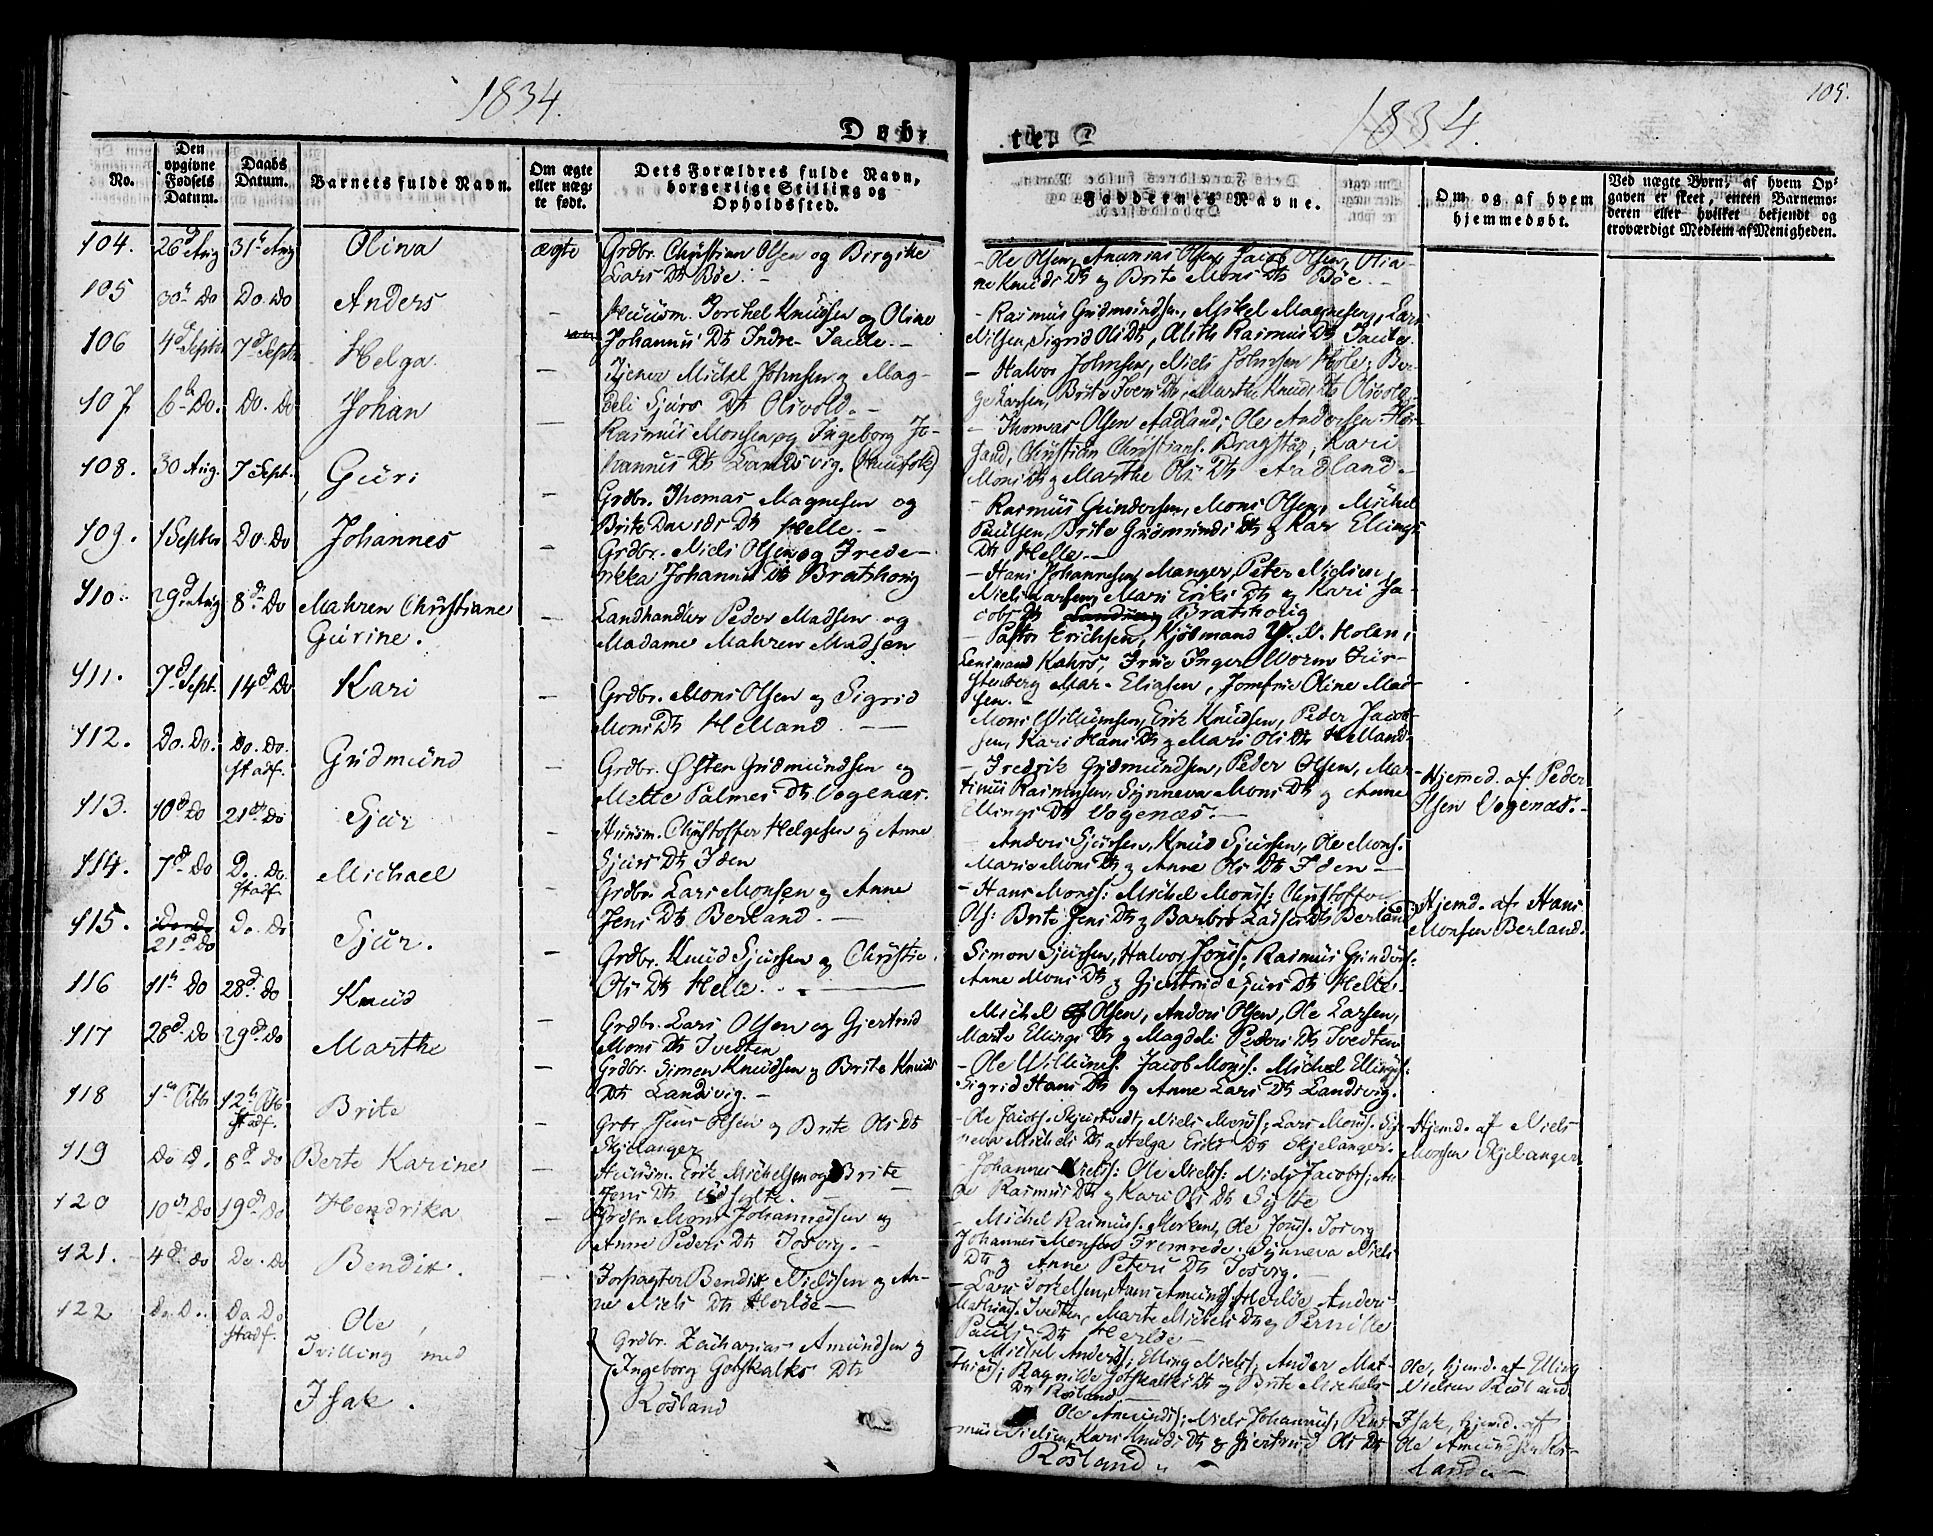 1834.
1834.
105.
Døb-
te.
No.
Den opgivne Fødsels Datum.
Daabs Datum.
Barnets fulde Navn.
Om ægte eller uægte født.
Dets Forældres fulde Navn, borgerlige Stilling og Opholdssted.
Faddernes Navne.
Om og af hvem hjemmedøbt.
Ved uægte Børn, af hvem Opgaven er skeet, enten Barnemoderen eller hvilket bekjendt og troværdigt Medlem af Menigheden.
104. 26d Aug 31t Aug Olina ægte Grdbr. Christian Olsen og Birgithe
Lars Dt Bøe. -
- Ole Olsen, Ananias Olsen, Jacob Olsen, Olia-
ne Knuds Dt og Brite Mons Dt Bøe. -
105 30t Do Do. Do Anders - Huusm. Torchel Knudsen og Oline
Johannes Dt Indre Taule. -
- Rasmus Gudmundsen, Mikel Magnesen, Lars
Nilsen, Sigrid Ols Dt, Alith Rasmus Dt Taule.
106 4d Septbr 7d Septbr Helga. - Tjener Mickel Johnsen og Mag-
deli Sjurs Dt Olsvold. -
- Halvor Johnsen, Niels Johnsen Hole, Ber-
ge Larsen, Brite Ivers Dt, Marthe Knuds Dt Olsvold. -
107 6te Do. Do. Do Johan - Rasmus Monsen og Ingeborg Jo-
hannes Dt Landsvig. (Huusfolk)
- Thomas Olsen Aadland, Ole Andersen Hør-
land, Christian Christians. Bragstad, Kari
Mons Dt og Marthe Ols Dt Aadland -
108. 30 Aug. 7 Sept. Guri - Grdbr. Thomas Magnesen og
Brite Davids Dt Helle. -
- Rasmus Gundersen, Mons Olsen, Mickel
Paulsen, Brite Gudmunds Dt og Kar Ellings
Dt Helle. -
109. 1 Septbr Do. Do Johannes - Grdbr. Niels Olsen og Frede-
rikka Johannes Dt Bratshoug
- Hans Johannesen Manger, Peter Nielsen,
Niels Larsen, Mari Eriks Dt og Kari Ja-
cobs Dt Bratshoug
110. 29d Aug 8de Do Mahren Christiane
Gurine.
Landhandler Peder Madsen og
Madame Mahren Madsen
- Pastor Erichsen, Kjøbmand D. Holm,
Lensmand Kahrs, Frue Inger Worm Für-
stenberg Mar- Eliasen, Jomfrue Oline Mad-
sen. -
111. 7d Sept. 14d Do Kari - Grdbr. Mons Olsen og Sigrid
Mons Dt Helland. -
Mons Willumsen, Erik Knudsen, Peder Jacob-
sen, Kari Hans Dt og Mari Ols Dt Helland.
112. Do. Do. Do. Do.
stadf. Gudmund - Grdbr. Østen Gudmundsen og
Mette Palmes Dt Vogenæs.
- Fredrik Gudmundsen, Peder Olsen, Mar-
tinus Rasmusen, Synneva Mons Dt og Anne
Ellings Dt Vogenæs. -
Hjemed. af Peder
Olsen Vogenæs. -
113. 10d Do 21de Do Sjur - Huusm. Christoffer Helgesen og Anne
Sjurs Dt Iden
Anders Sjursen, Knud Sjursen, Ole Mons.
Marie Mons Dt og Anne Ols Dt Iden -
114. 7d Do Do. Do.
stadf Michael - Grdbr. Lars Monsen og Anne
Jens Dt Berland. -
- Hans Mons: Mickel Mons: Christoffer
Ols: Brite Jens Dt og Barbro Lasses Dt Berland
Hjemd. af Hans
Monsen Berland.
115. Do. Do.
21d Do Do. Do Sjur. - Grdbr. Knud Sjursen og Christie
Ols Dt Helle. -
Simon Sjursen, Halvor Jons: Rasmus Gunders:
Anne Mons Dt og Gjertrud Sjurs Dt Helle.
116 11te Do 28d. Do Knud - Grdbr. Lars Olsen og Gjertrud
Mons Dt Tvedten
Mickel Olsen, Anders Olsen, Ole Larsen,
Marte Ellings Dt og Magdeli Peders Dt Tvedten
117 28d. Do 29d Do Marthe - Grdbr. Simen Knudsen og Brite Knuds
Dt Landsvig. -
- Ole Willums. Jacob Mons. Mickel Ellings:
Sigrid Hans Dt og Anne Lars Dt Landsvig.
118 1te Octb 12te Octb
stadf. Brite - Grbr Jens Olsen og Brite Ols Dt
Skjelanger
- Ole Jacobs. Skjerstvedt, Niels Mons: Lars Mons. Syn-
neva Mickels Dt og Helga Eriks Dt Skjelanger.
Hjemd. af Niels
Monsen Skjelanger
119 Do D. 6d Do Berte Karine - Huusm. Erik Mickelsen og Brite
Jens Dt Sylte. -
- Johannes Niels: Ole Niels: Niels Jacobs: An-
ne Rasmus Dt og Kari Ols Dt Sylte
120 10de Do 19de Do Hendrika - Grdbr. Mons Johannesen og
Anne Peders Dt Tosvig. -
- Mickel Rasmus. Morken, Ole Jons. Tosvig
Johannes Monsen Fremrede. Synneva Niels
Dt og Anne Peters Dt Tosvig. -
121. 4de do Do. Do Bendix. - Forpagter Bendix Nielssen og An-
ne Niels Dt Herløe -
- Lars Torkelsen, Hans Amunds: Herløe Anders
Mathias. Tvedten, Marte Mickels Dt og Pernille
Pauls Dt Herløe -
122 Do D. Do. Do
stadf. Ole,
Tvilling med
Isak.
Grdbr. Zacharias Amundsen og
Ingeborg Gotskalks Dt
Rosland
- Mickel Anders: Elling Niels: Ander Mat-
hias: Ragnilde Gotskalks Dt og Brite Mickels
Dt Rosland -
Ole Amunds: Niels Johannes: Ras-
mus Nielsen, Kari Knuds Dt og Gjertrud Ols Dt
Rosland
Ole, hjemd. af Elling
Nielsen Rosland
Isak, hjemd. af
Ole Amundsen Ros-
land -